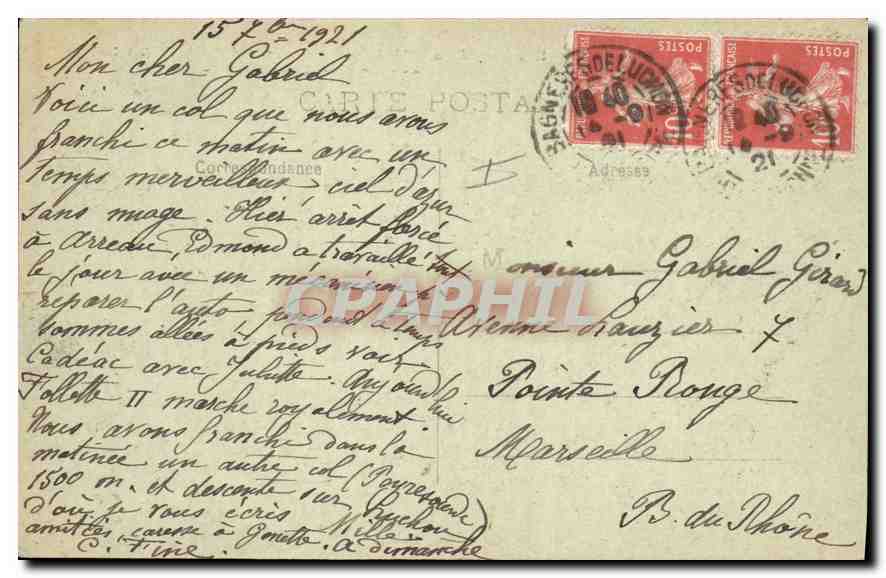 15 7bre 1921
Mon cher Gabriel
Voici un col que nous avons
franchi ce matin avec un
temps merveilleux ciel d'azur
sans nuage. Hier arrêt forcé
à Arreau, Edmond a travaillé tout
le jour avec un mécanicien à
reparer l'auto pendant ce temps
sommes allés à pieds voir
Cadéac avec Juliette. Aujourd'hui
Follette II marche royalement.
Nous avons franchi dans la
matinée un autre col (Peyresourde)
1500 m. et descente sur Luchon
d'où je vous écris Mille
amitiés, caresse à Ginette. A dimanche
C. Fine.
CARTE POSTA
Correspondance
Adresse
POSTES
POSTES
BAGNERES DE LUCHON
BAGNERES DE LUCHON
CPAPHIL
M
Monsieur Gabriel Girard
Avenue Lauzier 7
Pointe Rouge
Marseille
B. du Rhône